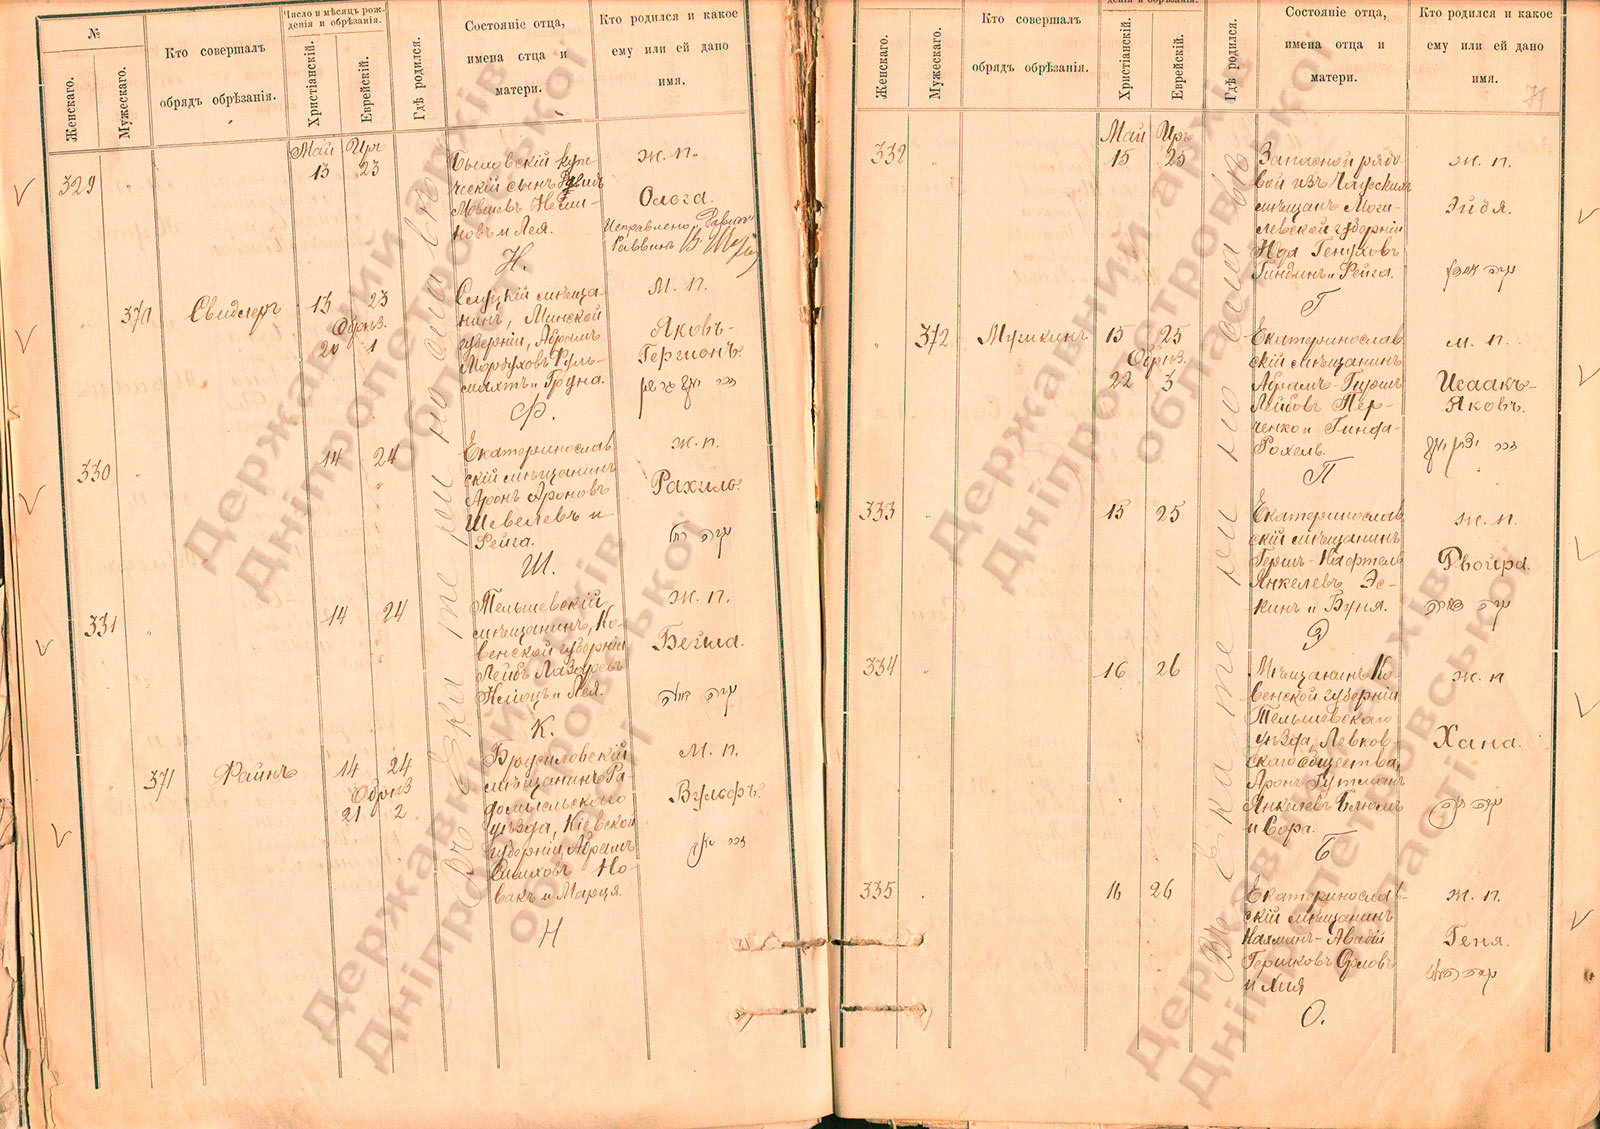 №
Женскаго.
Мужескаго.
Кто совершалъ
обрядъ обрѣзанія.
Число и мѣсяцъ рож-
денія и обрѣзанія.
Христіанскій.
Еврейскій.
Гдѣ родился.
Состояніе отца,
имена отца и
матери.
Кто родился и какое
ему или ей дано
имя.
Май Иръ
329
13 23
ческій сынъ
Мовшевъ
новъ и Лея.
ж. п.
Ольга.
Исправлено
Раввинъ
Н.
370
Свидлеръ
13 23
Обрѣз.
20 1
Слуцкій мѣща-
нинъ, Минской
губерніи, Абрамъ
Мордуховъ Фуль-
махтъ и Груна.
м. п.
Яковъ-
Гершонъ.
Ф.
330
14 24
Екатеринослав
скій мѣщанинъ
Аронъ Ароновъ
Шевелевъ и
Рейга.
ж. п.
Рахиль.
Ш.
331
14 24
Тельшевскій
мѣщанинъ, Ко-
венской губерніи
Лейбъ Лазаревъ
и Лея.
ж. п.
Бейла.
К.
371
Файнъ
14 24
Обрѣз
21 2
Брусиловскій
мѣщанинъ Ра-
домысльскаго
уѣзда, Кіевской
губерніи, Абрамъ
Но-
вакъ и Марця.
м. п.
Вульфъ.
Н
Въ Екатеринославѣ
Женскаго.
Мужескаго.
Кто совершалъ
обрядъ обрѣзанія.
денія и обрѣзанія.
Христіанскій.
Еврейскій.
Гдѣ родился.
Состояніе отца,
имена отца и
матери.
Кто родился и какое
ему или ей дано
имя.
71
Май Иръ
332
15 25
Запасной рядо-
вой изъ Чаусскихъ
мѣщанъ Моги-
левской губерніи
Генуховъ
Гиндинъ и Рейга.
ж. п.
Эйдя.
Г
372
Мушкинъ
15 25
Обрѣз.
22 3
Екатеринослав
скій мѣщанинъ
Абрамъ-Гиршъ
Лейбовъ Пер-
ченко и Гинда-
Рохель.
м. п.
Исаакъ-
Яковъ.
П
333
15 25
Екатеринослав
скій мѣщанинъ
Гершъ-Нафтель
Янкелевъ Эс-
кинъ и Буня.
ж. п.
Двойра.
Э
334
16 26
Мѣщанинъ Ко-
венской губерніи
Тельшевскаго
уѣзда, Левков-
скаго общества,
Аронъ Гутманъ
Янкелевъ Блюмъ
и Сора.
ж. п
Хана.
Б
335
16 26
Екатеринослав-
скій мѣщанинъ
Нахманъ-Авадій
Гершковъ Орловъ
и Хия
ж. п.
Геня.
О.
Въ Екатеринославѣ
Державний архів
Дніпропетровської
області
Державний архів
Дніпропетровської
області
Державний архів
Дніпропетровської
області
Державний архів
Дніпропетровської
області